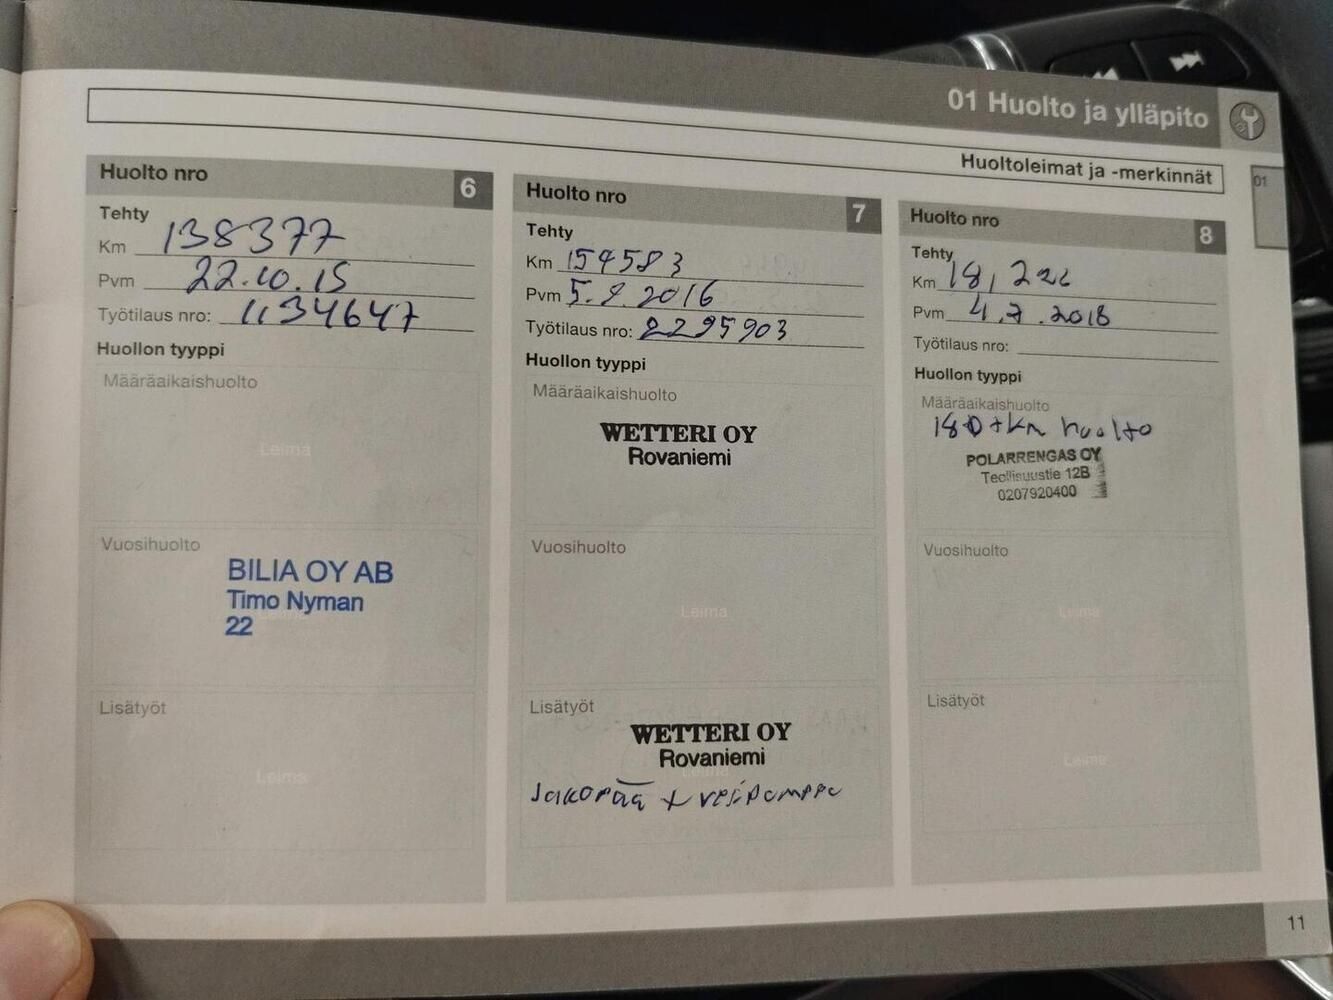 01 Huolto ja ylläpito
Huoltoleimat ja -merkinnät
01
Huolto nro 6
Tehty
Km 138377
Pvm 22.10.15
Työtilaus nro: 1134647
Huollon tyyppi
Määräaikaishuolto
Leima
Vuosihuolto
BILIA OY AB
Timo Nyman
22
Leima
Lisätyöt
Leima
Huolto nro 7
Tehty
Km 154583
Pvm 5.9.2016
Työtilaus nro: 2295903
Huollon tyyppi
Määräaikaishuolto
WETTERI OY
Rovaniemi
Vuosihuolto
Leima
Lisätyöt
WETTERI OY
Rovaniemi
Leima
Jakopää + vesipumppu
Huolto nro 8
Tehty
Km
Pvm 4.7.2018
Työtilaus nro:
Huollon tyyppi
Määräaikaishuolto
180 tkm huolto
POLARRENGAS OY
Teollisuustie 12B
0207920400
Vuosihuolto
Leima
Lisätyöt
Leima
11